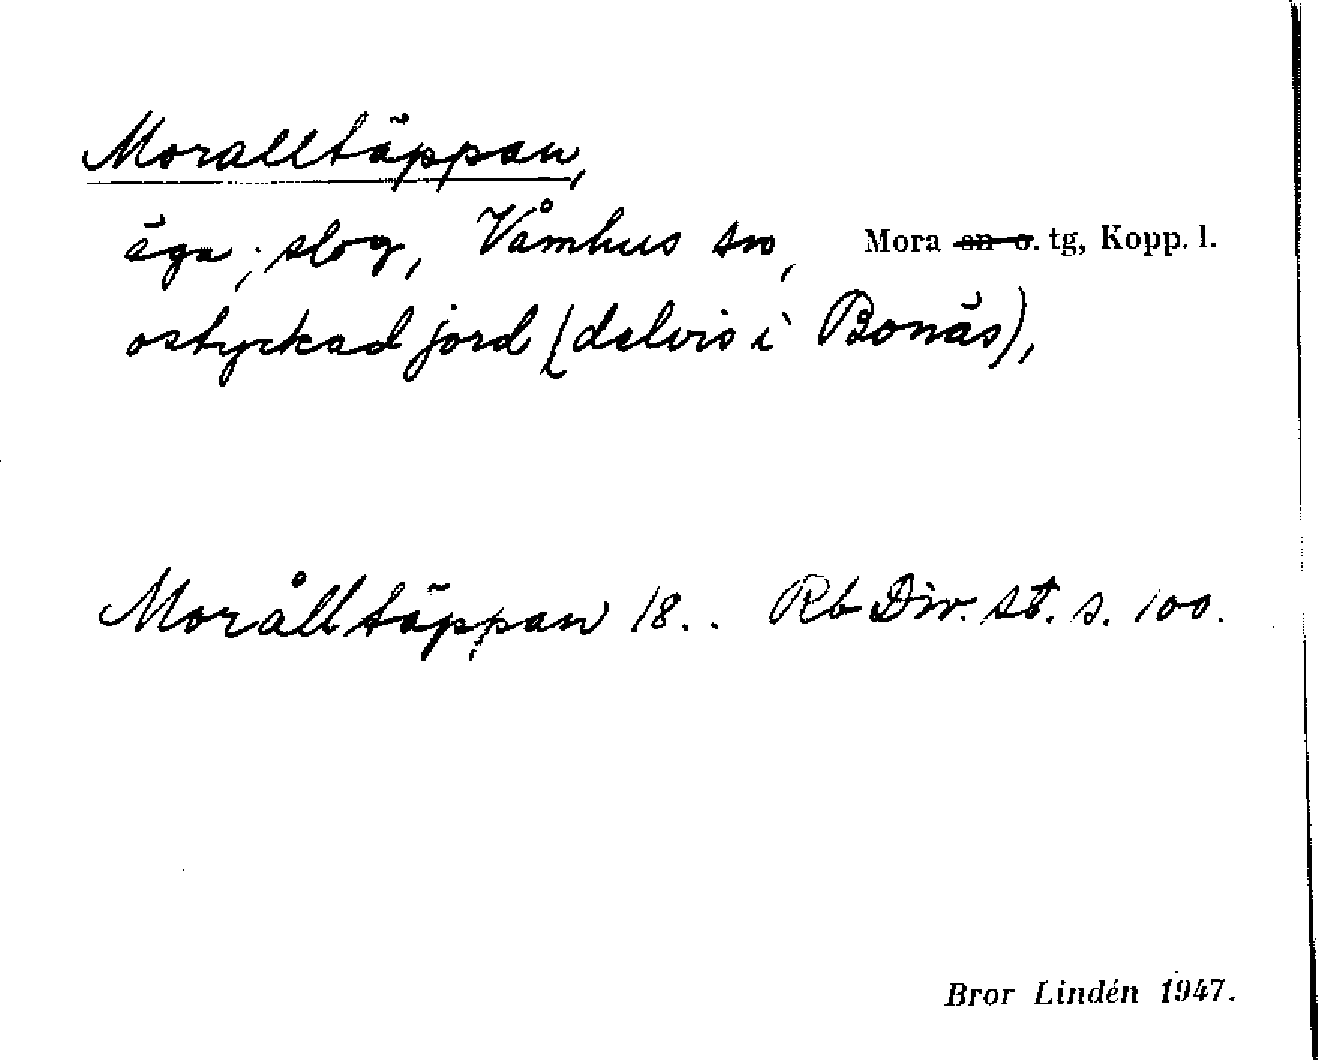 Moralltäppan,
äga; slog, Våmhus sn, Mora sn o. tg, Kopp. l.
ostyckad jord (delvis i Bonäs),
Morålltäppan 18.. Rb Div. st. s. 100.
Bror Lindén 1947.